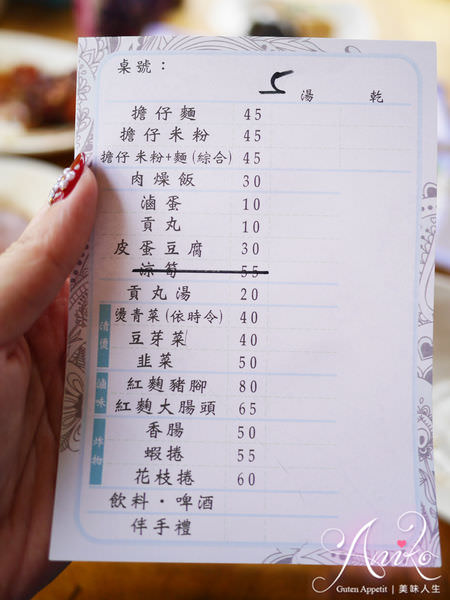 桌號：
湯 乾
擔仔麵 45
擔仔米粉 45
擔仔米粉+麵(綜合) 45
肉燥飯 30
滷蛋 10
貢丸 10
皮蛋豆腐 30
涼筍 55
貢丸湯 20
清燙
燙青菜(依時令) 40
豆芽菜 40
韭菜 50
滷味
紅麴豬腳 80
紅麴大腸頭 65
炸物
香腸 50
蝦捲 55
花枝捲 60
飲料・啤酒
伴手禮
Aniko
Guten Appetit | 美味人生